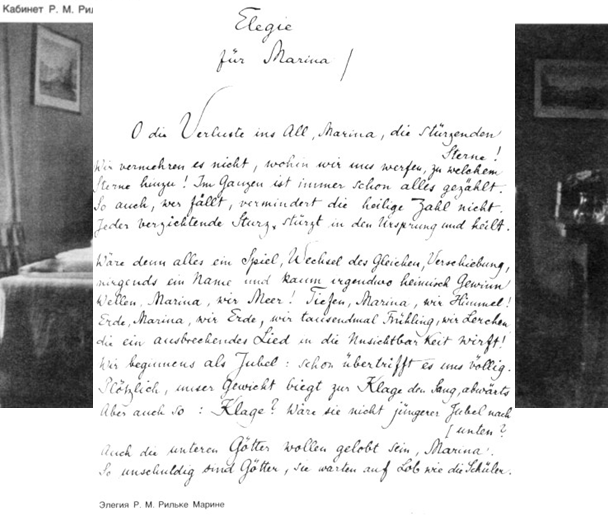 Кабинет Р. М. Рил
Elegie
für Marina
O die Verluste ins All, Marina, die stürzenden
Sterne!
Wir vermehren es nicht, wohin wir uns werfen, zu welchem
Sterne hinzu! Im Ganzen ist immer schon alles gezählt.
So auch, wer fällt, vermindert die heilige Zahl nicht.
Jeder verzichtende Sturz, stürzt in den Ursprung und heilt.
Wäre denn alles ein Spiel, Wechsel des Gleichen, Verschiebung,
nirgends ein Name und kaum irgendwo heimisch Gewinn
Wellen, Marina, wir Meer! Tiefen, Marina, wir Himmel!
Erde, Marina, wir Erde, wir tausendmal Frühling, wir Lerchen,
die ein ausbrechendes Lied in die Unsichtbarkeit wirft!
Wir beginnens als Jubel: schon übertrifft es uns völlig.
Plötzlich, unser Gewicht biegt zur Klage den Sang, abwärts
Aber auch so: Klage? Wäre sie nicht jüngerer Jubel nach
unten?
Auch die unteren Götter wollen gelobt sein, Marina.
So unschuldig sind Götter, sie warten auf Lob wie die Schüler.
Элегия Р. М. Рильке Марине